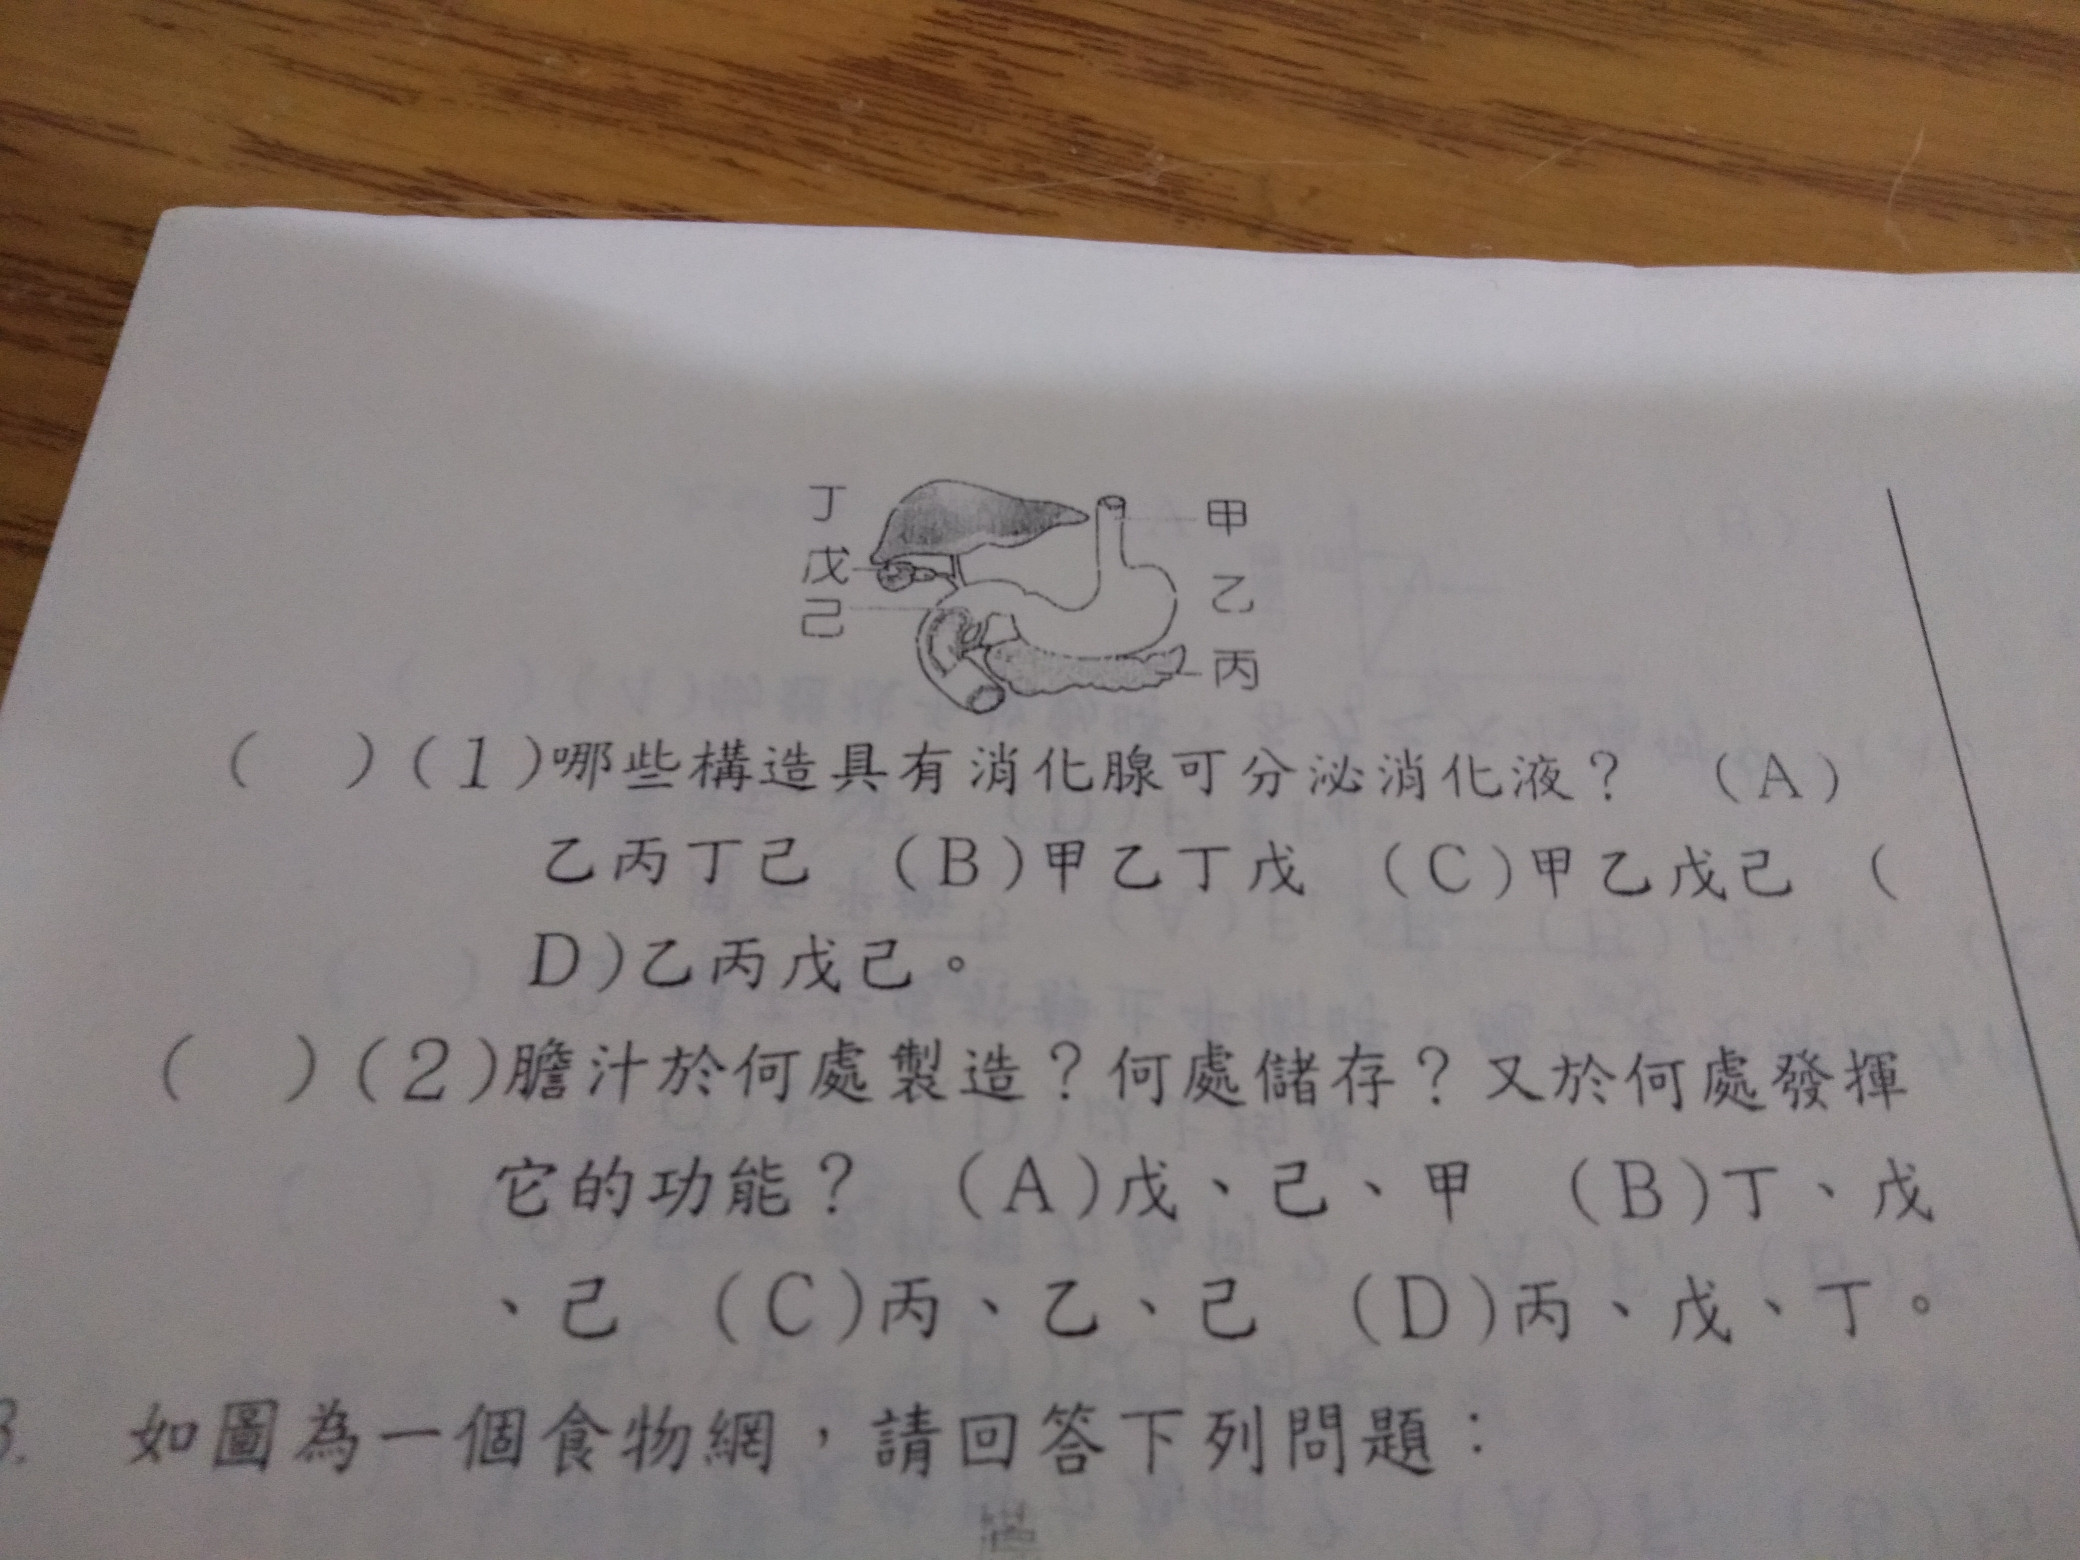 丁
甲
戊
乙
己
丙
(　)(1)哪些構造具有消化腺可分泌消化液？ (A)
乙丙丁己 (B)甲乙丁戊 (C)甲乙戊己 (
D)乙丙戊己。
(　)(2)膽汁於何處製造？何處儲存？又於何處發揮
它的功能？ (A)戊、己、甲 (B)丁、戊
、己 (C)丙、乙、己 (D)丙、戊、丁。
3. 如圖為一個食物網，請回答下列問題：